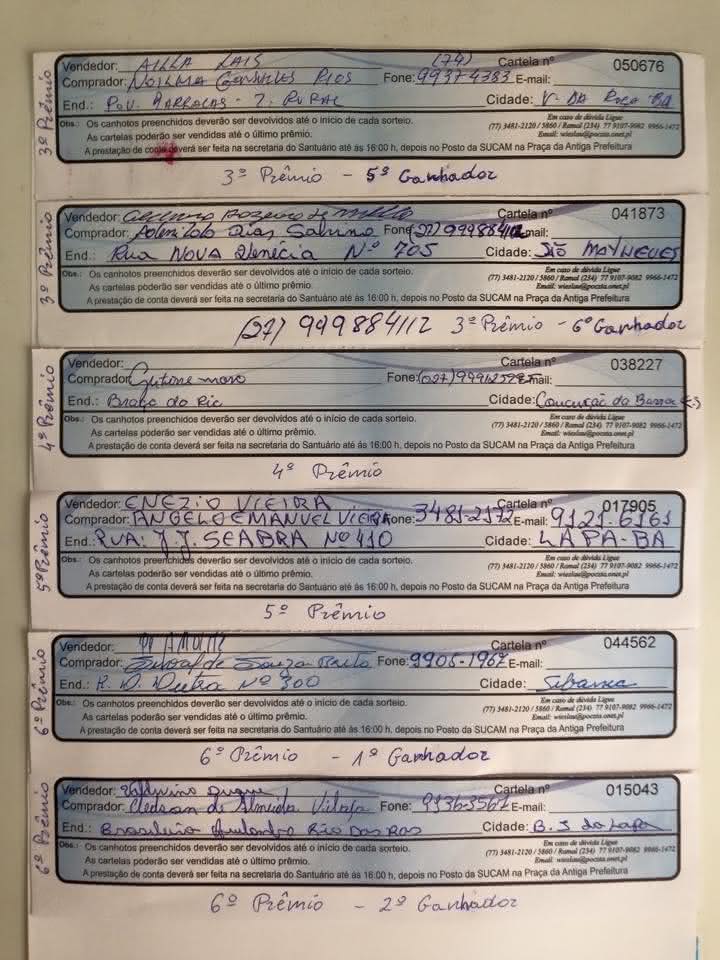 3º Prêmio
Vendedor: AILLA LAIS (74) Cartela nº 050676
Comprador: NOILMA GONSALVES RIOS Fone: 99374383 E-mail:
End.: POV. BARRACAS - Z. RURAL Cidade: V. DA ROÇA BA
Obs.: Os canhotos preenchidos deverão ser devolvidos até o início de cada sorteio. Em caso de dúvida Ligue
As cartelas poderão ser vendidas até o último prêmio. (77) 3481-2120 / 5860 / Ramal (234) 77 9107-9082 9966-1472
Email: wieslau@poczta.onet.pl
A prestação de conta deverá ser feita na secretaria do Santuário até às 16:00 h, depois no Posto da SUCAM na Praça da Antiga Prefeitura
3º Prêmio - 5º Ganhador
3º Prêmio
Vendedor: de Mello Cartela nº 041873
Comprador: Dias Sabino Fone: (27) 999884112 E-mail:
End.: Rua NOVA Venécia Nº 705 Cidade: SÃO MATHEUES
Obs.: Os canhotos preenchidos deverão ser devolvidos até o início de cada sorteio. Em caso de dúvida Ligue
As cartelas poderão ser vendidas até o último prêmio. (77) 3481-2120 / 5860 / Ramal (234) 77 9107-9082 9966-1472
Email: wieslau@poczta.onet.pl
A prestação de conta deverá ser feita na secretaria do Santuário até às 16:00 h, depois no Posto da SUCAM na Praça da Antiga Prefeitura
(27) 999884112 3º Prêmio - 6º Ganhador
4º Prêmio
Vendedor: Cartela nº 038227
Comprador: Fone: (027) E-mail:
End.: Braço do Rio Cidade: Conceição da Barra ES
Obs.: Os canhotos preenchidos deverão ser devolvidos até o início de cada sorteio. Em caso de dúvida Ligue
As cartelas poderão ser vendidas até o último prêmio. (77) 3481-2120 / 5860 / Ramal (234) 77 9107-9082 9966-1472
Email: wieslau@poczta.onet.pl
A prestação de conta deverá ser feita na secretaria do Santuário até às 16:00 h, depois no Posto da SUCAM na Praça da Antiga Prefeitura
4º Prêmio
5º Prêmio
Vendedor: ENEZIO VIEIRA Cartela nº 017905
Comprador: ANGELO EMANUEL VIEIRA Fone: 3481-2172 E-mail: 9121-6161
End.: RUA: J.J. SEABRA Nº 410 Cidade: LAPA-BA
Obs.: Os canhotos preenchidos deverão ser devolvidos até o início de cada sorteio. Em caso de dúvida Ligue
As cartelas poderão ser vendidas até o último prêmio. (77) 3481-2120 / 5860 / Ramal (234) 77 9107-9082 9966-1472
Email: wieslau@poczta.onet.pl
A prestação de conta deverá ser feita na secretaria do Santuário até às 16:00 h, depois no Posto da SUCAM na Praça da Antiga Prefeitura
5º Prêmio
6º Prêmio
Vendedor: Cartela nº 044562
Comprador: de Souza Fone: 9905-1967 E-mail:
End.: R. D. Dutra Nº 300 Cidade:
Obs.: Os canhotos preenchidos deverão ser devolvidos até o início de cada sorteio. Em caso de dúvida Ligue
As cartelas poderão ser vendidas até o último prêmio. (77) 3481-2120 / 5860 / Ramal (234) 77 9107-9082 9966-1472
Email: wieslau@poczta.onet.pl
A prestação de conta deverá ser feita na secretaria do Santuário até às 16:00 h, depois no Posto da SUCAM na Praça da Antiga Prefeitura
6º Prêmio - 1º Ganhador
6º Prêmio
Vendedor: Duque Cartela nº 015043
Comprador: Cledson de Almeida Fone: 91363567 E-mail:
End.: Rio das Ras Cidade: B. J da Lapa
Obs.: Os canhotos preenchidos deverão ser devolvidos até o início de cada sorteio. Em caso de dúvida Ligue
As cartelas poderão ser vendidas até o último prêmio. (77) 3481-2120 / 5860 / Ramal (234) 77 9107-9082 9966-1472
Email: wieslau@poczta.onet.pl
A prestação de conta deverá ser feita na secretaria do Santuário até às 16:00 h, depois no Posto da SUCAM na Praça da Antiga Prefeitura
6º Prêmio - 2º Ganhador